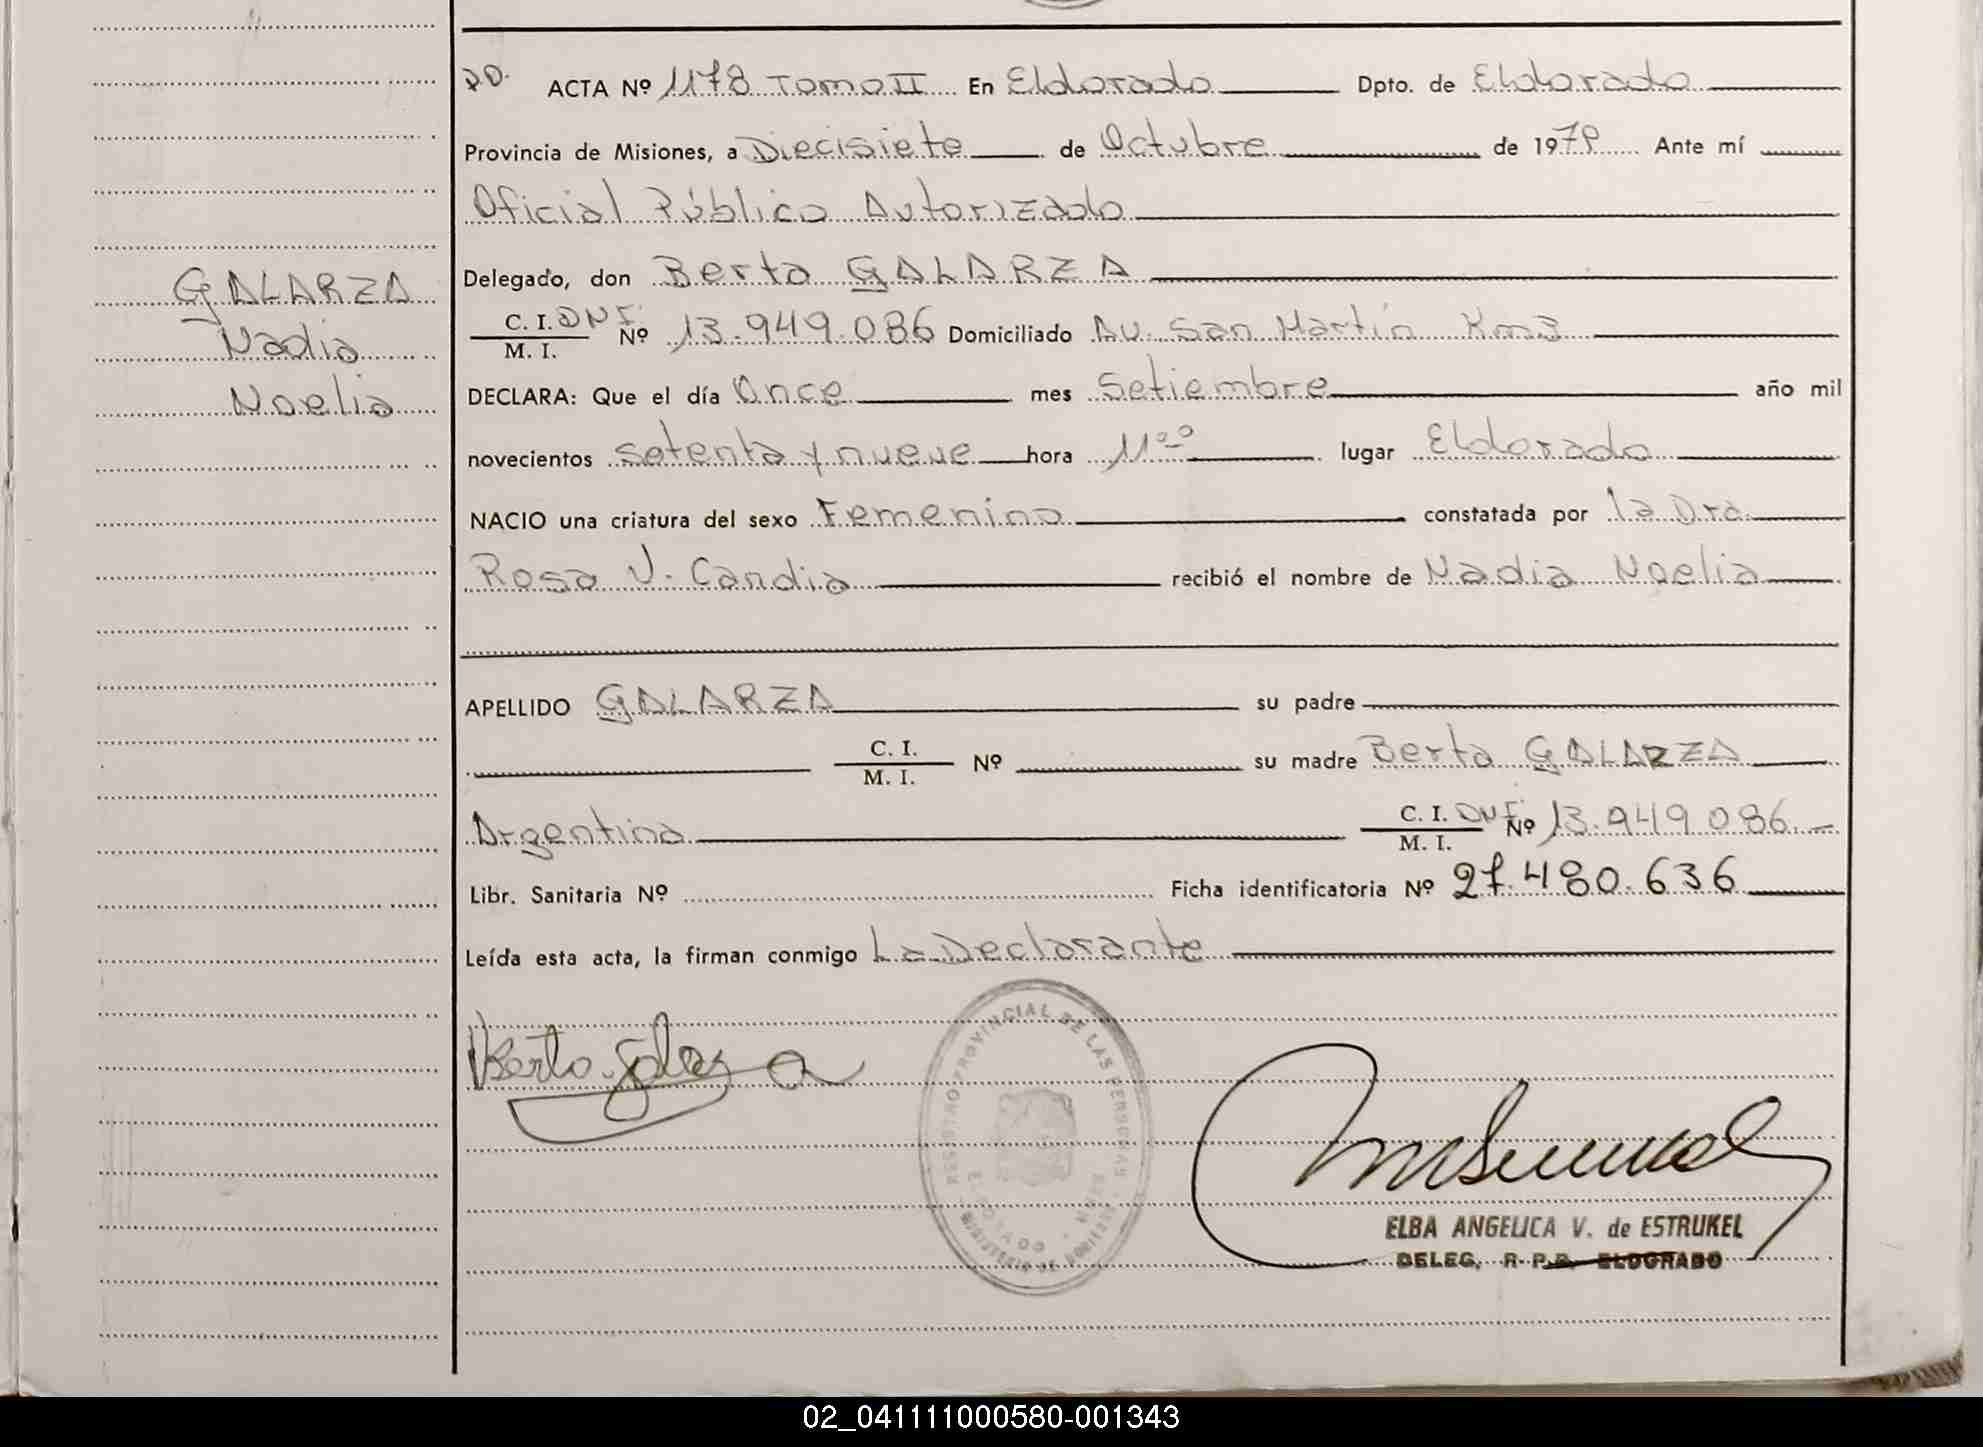 D.D. ACTA Nº 1178 Tomo II En Eldorado Dpto. de Eldorado
Provincia de Misiones, a Diecisiete de Octubre de 1979 Ante mí
Oficial Público Autorizado
Delegado, don Berta GALARZA
GALARZA
Nadia
Noelia
C. I. DNI. Nº 13.949.086 Domiciliado Av. San Martín Km3
M. I.
DECLARA: Que el día Once mes Setiembre año mil
novecientos setenta y nueve hora 11ºº lugar Eldorado
NACIO una criatura del sexo Femenino constatada por la Dra.
Rosa V. Candia recibió el nombre de Nadia Noelia
APELLIDO GALARZA su padre
C. I. Nº su madre Berta GALARZA
M. I.
Argentina C. I. DNI. Nº 13.949.086
M. I.
Libr. Sanitaria Nº Ficha identificatoria Nº 27.480.636
Leída esta acta, la firman conmigo La Declarante
Berta Galarza
REGISTRO PROVINCIAL DE LAS PERSONAS
ELBA ANGELICA V. de ESTRUKEL
DELEG. R. P. P. ELDORADO
02_041111000580-001343